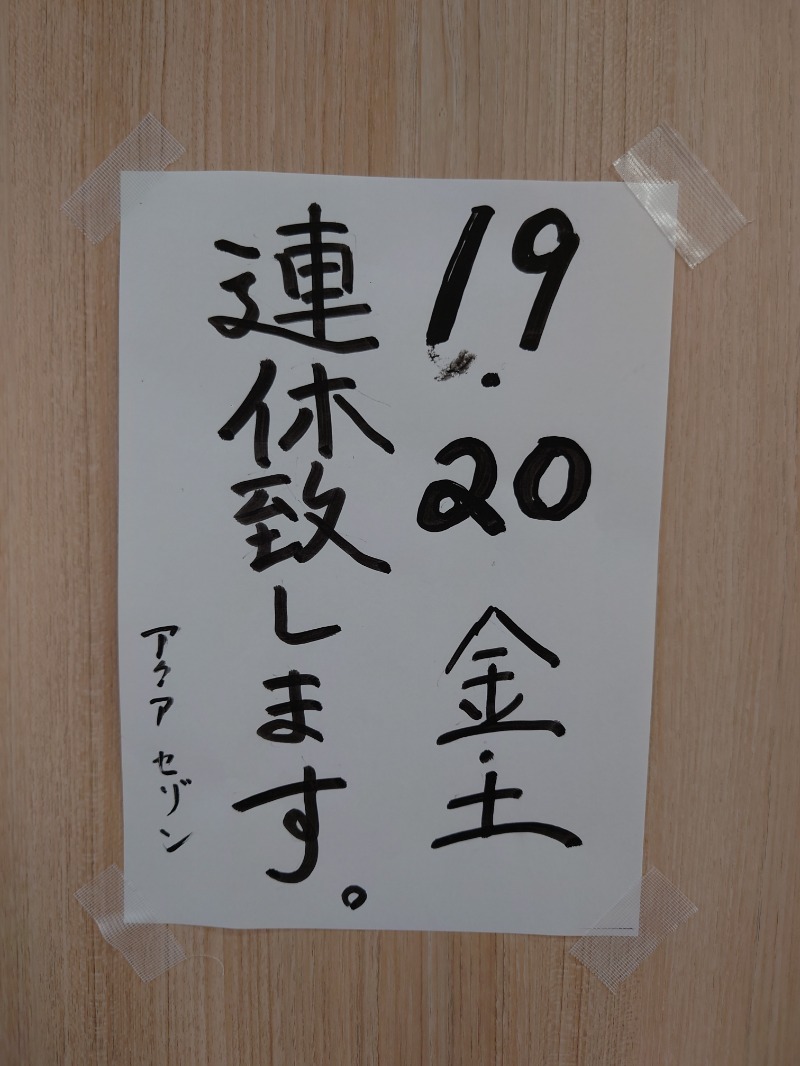 19.20 金・土
連休致します。
アクア セゾン